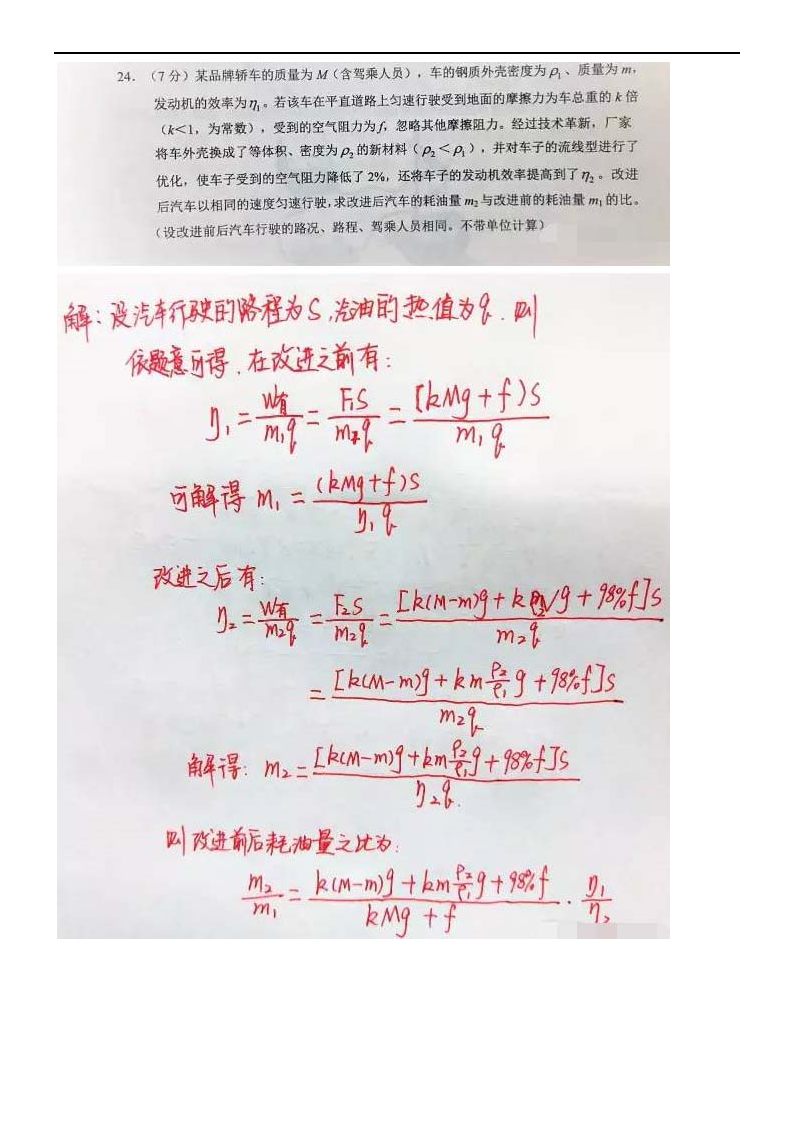 24. （7 分）某品牌轿车的质量为 M（含驾乘人员），车的钢质外壳密度为 ρ₁、质量为 m，
发动机的效率为 η₁。若该车在平直道路上匀速行驶受到地面的摩擦力为车总重的 k 倍
（k＜1，为常数），受到的空气阻力为 f，忽略其他摩擦阻力。经过技术革新，厂家
将车外壳换成了等体积、密度为 ρ₂ 的新材料（ρ₂＜ρ₁），并对车子的流线型进行了
优化，使车子受到的空气阻力降低了 2%，还将车子的发动机效率提高到了 η₂。改进
后汽车以相同的速度匀速行驶，求改进后汽车的耗油量 m₂ 与改进前的耗油量 m₁ 的比。
（设改进前后汽车行驶的路况、路程、驾乘人员相同。不带单位计算）
解：设汽车行驶的路程为S，汽油的热值为q．则
依题意可得，在改进之前有：
η₁ = W有/m₁q = F₁S/m₁q = [kMg + f)S/m₁q
可解得 m₁ = (kMg+f)S/η₁q
改进之后有：
η₂ = W有/m₂q = F₂S/m₂q = [k(M-m)g + kρ₂Vg + 98%f]S/m₂q
= [k(M-m)g + km ρ₂/ρ₁ g + 98%f]S/m₂q
解得：m₂ = [k(M-m)g + km ρ₂/ρ₁ g + 98%f]S/η₂q.
则改进前后耗油量之比为：
m₂/m₁ = k(M-m)g + km ρ₂/ρ₁ g + 98%f/kMg + f · η₁/η₂